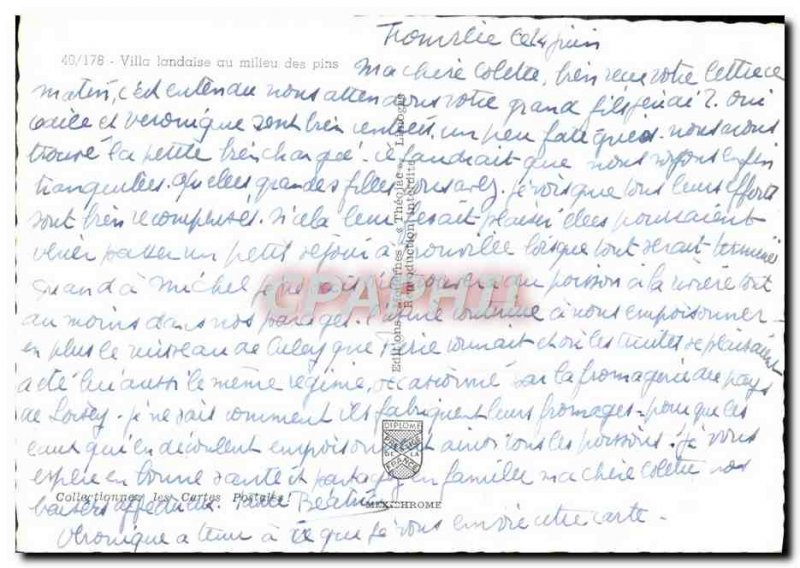 Tronville le 4 juin
40/178 - Villa landaise au milieu des pins
Ma chère Colette, bien reçu votre lettre ce
matin, c'est entendu nous attendons votre grand fils jeudi 7. oui
Cécile et Véronique sont bien rentrées un peu fatiguées. nous avons
trouvé la petite bien changée. il faudrait que nous soyons enfin
tranquilles. quelles grandes filles vous avez. je vois que tous leurs efforts
sont bien récompensés. si cela leur faisait plaisir elles pourraient
venir passer un petit séjour à Tronville lorsque tout serait terminé
quand à Michel pas de poisson à la rivière tout
au moins dans nos parages. l'usine continue à nous empoisonner
en plus le ruisseau de Culey que connait dont les truites se plaisaient
a été lui aussi le même régime, occasionné par la fromagerie du pays
de Loisey. je ne sais comment ils fabriquent leurs fromages pour que les
eaux qui en découlent empoisonnent ainsi tous les poissons. Je vous
espère en bonne santé et partagez en famille ma chère Colette nos
baisers affectueux. Tante Béatrix
Véronique a tenu à ce que je vous envoie cette carte.
Editions "Théojac" Limoges
Reproduction interdite
CPAPHIL
DIPLOME
DE LA
FRANCE
Collectionnez les Cartes Postales !
MEXICHROME